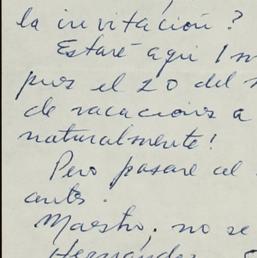 la invitación?
Estaré aquí 1 m
pues el 20 del
de vacaciones a
naturalmente!
Pero pasaré al
antes.
Maestro, no se
Hernández